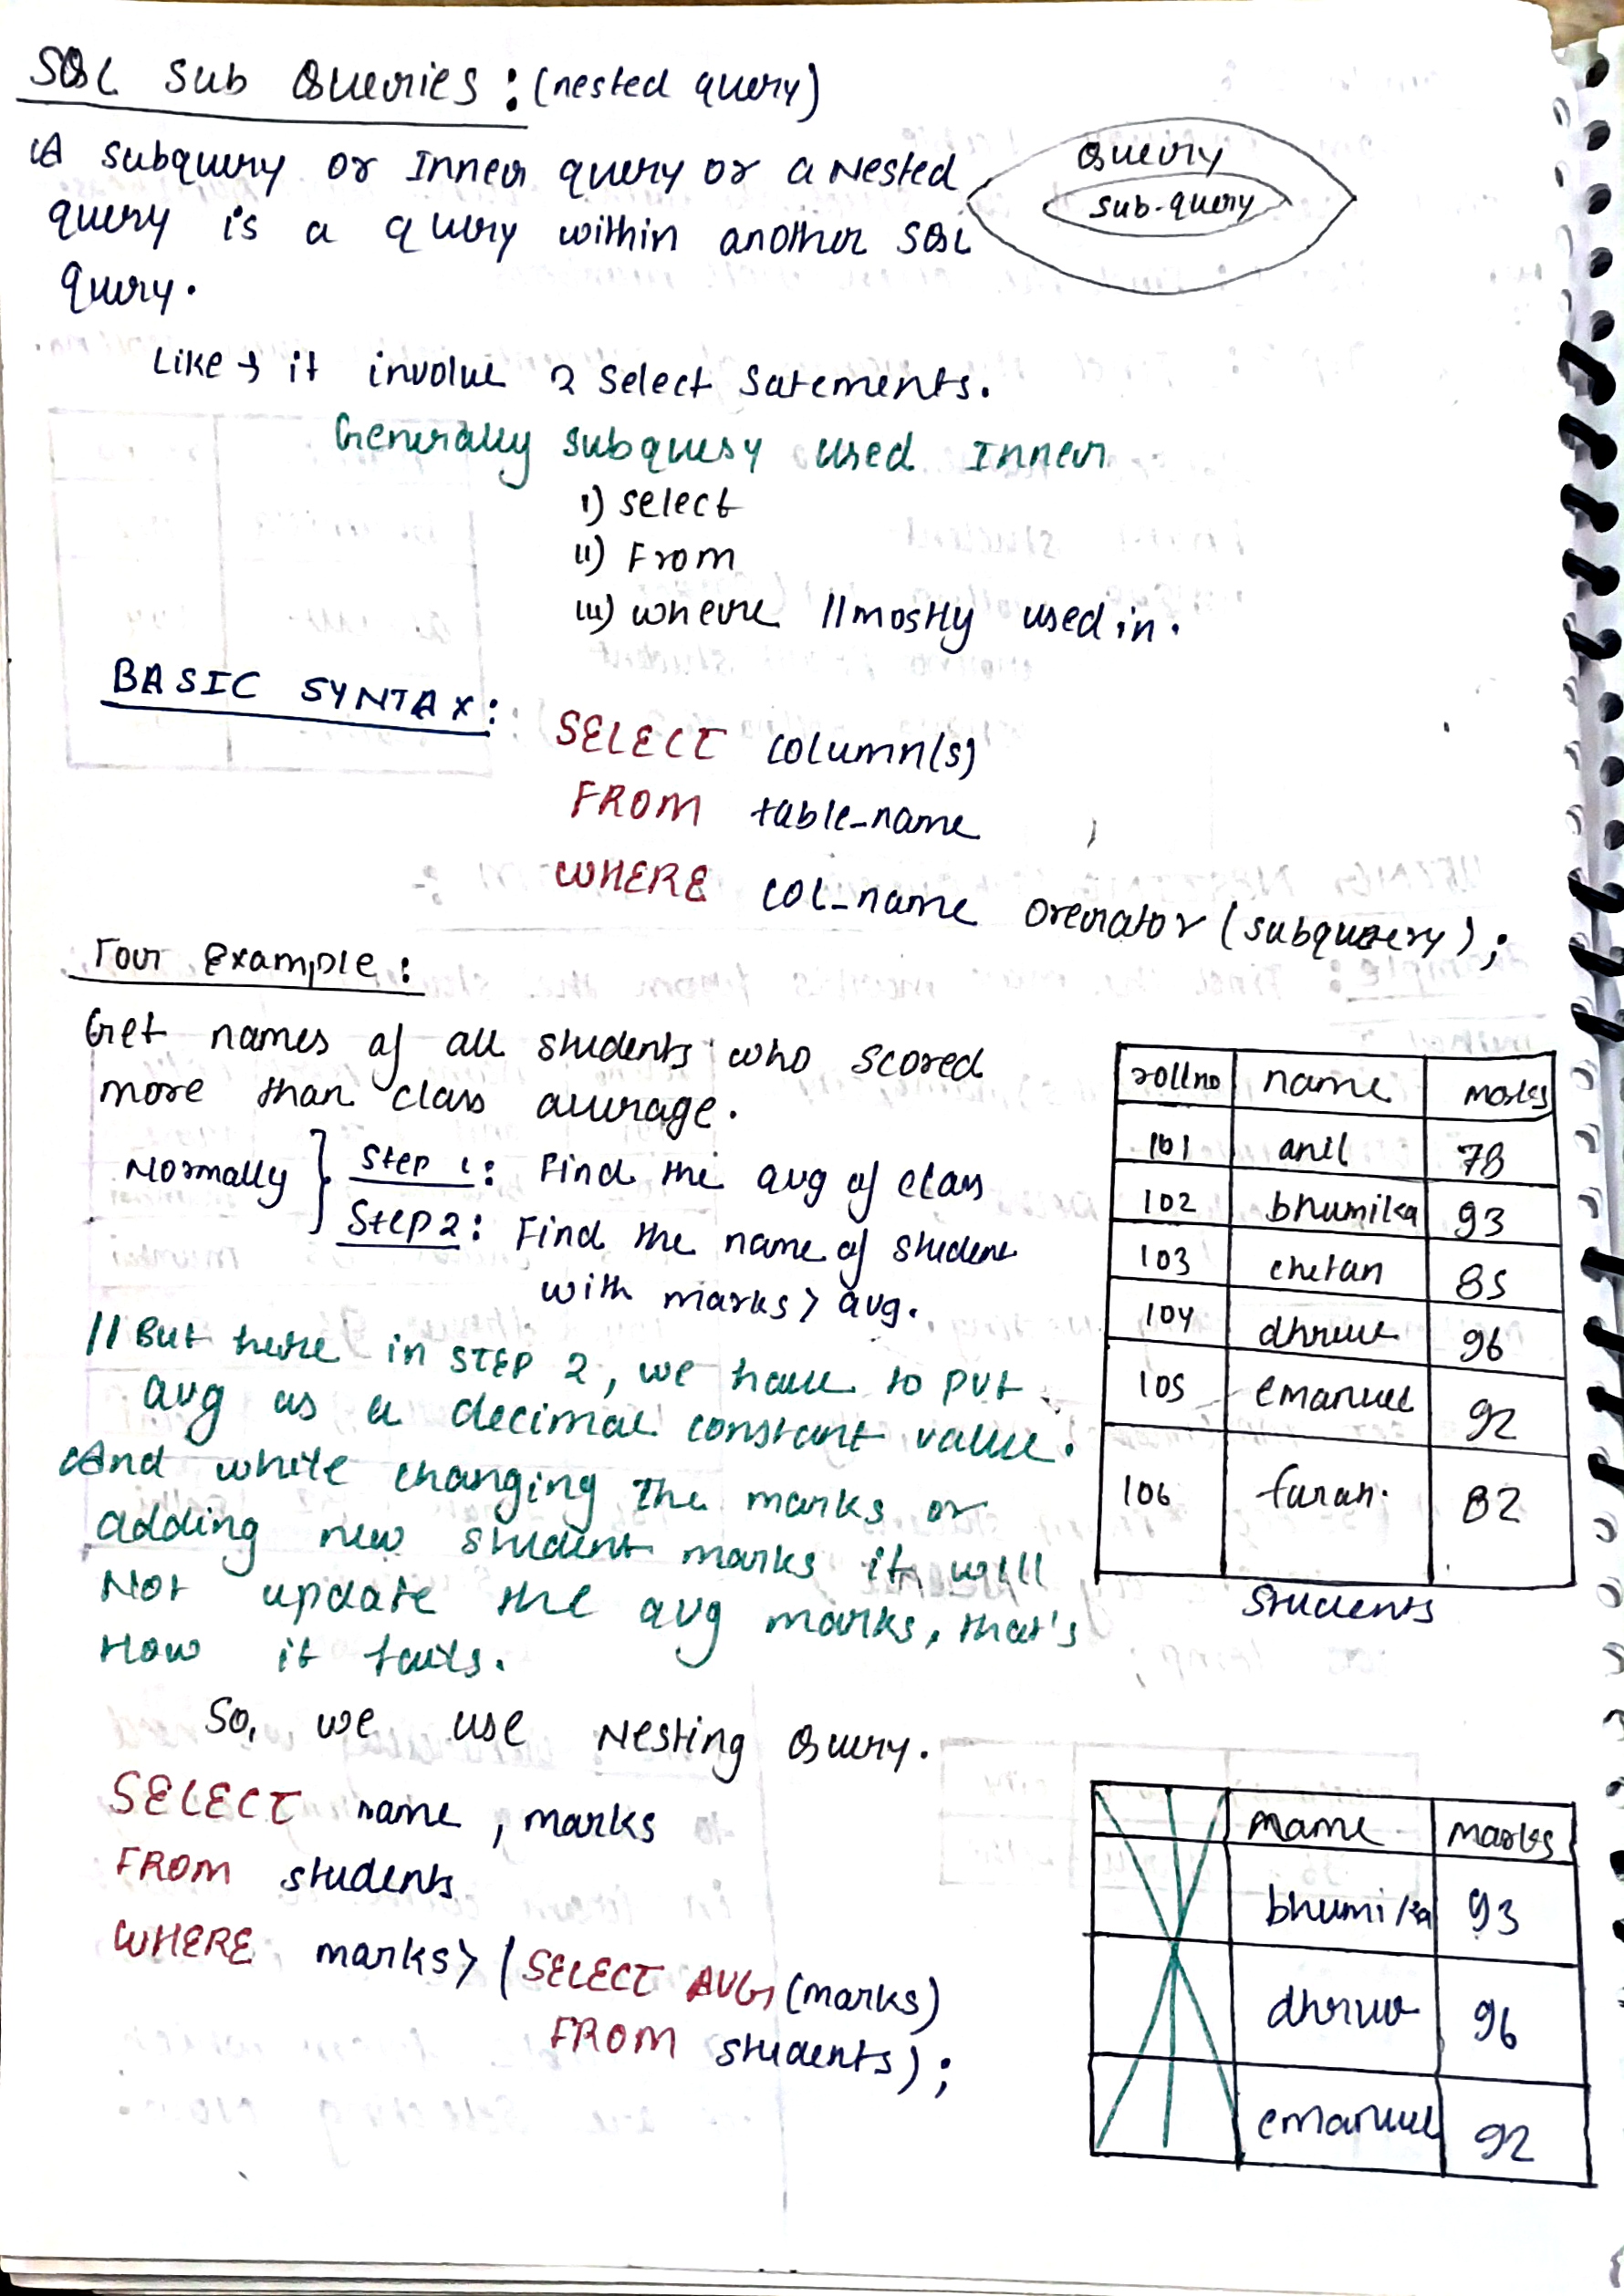 SQL Sub Queries : (nested query)
A subquery or Inner query or a Nested
query is a query within another SQL
query.
Query
sub-query
Like → it involve 2 select Satements.
Generally subquery used Inner
i) select
ii) From
iii) where //mostly used in.
BASIC SYNTAX :
SELECT column(s)
FROM table_name
WHERE col_name operator (subquery) ;
For Example :
Get names of all students who scored
more than class average.
Normally } Step 1 : Find the avg of class
Step 2 : Find the name of student
with marks > avg.
// But here in STEP 2, we have to put
avg as a decimal constant value.
And while changing The marks or
adding new student marks it will
Not update the avg marks, that's
How it fails.
rollno name marks
101 anil 78
102 bhumika 93
103 chetan 85
104 dhruv 96
105 emanuel 92
106 farah 82
Students
So, we use Nesting Query.
SELECT name, marks
FROM students
WHERE marks > (SELECT AVG (marks)
FROM students) ;
name marks
bhumika 93
dhruv 96
emanuel 92